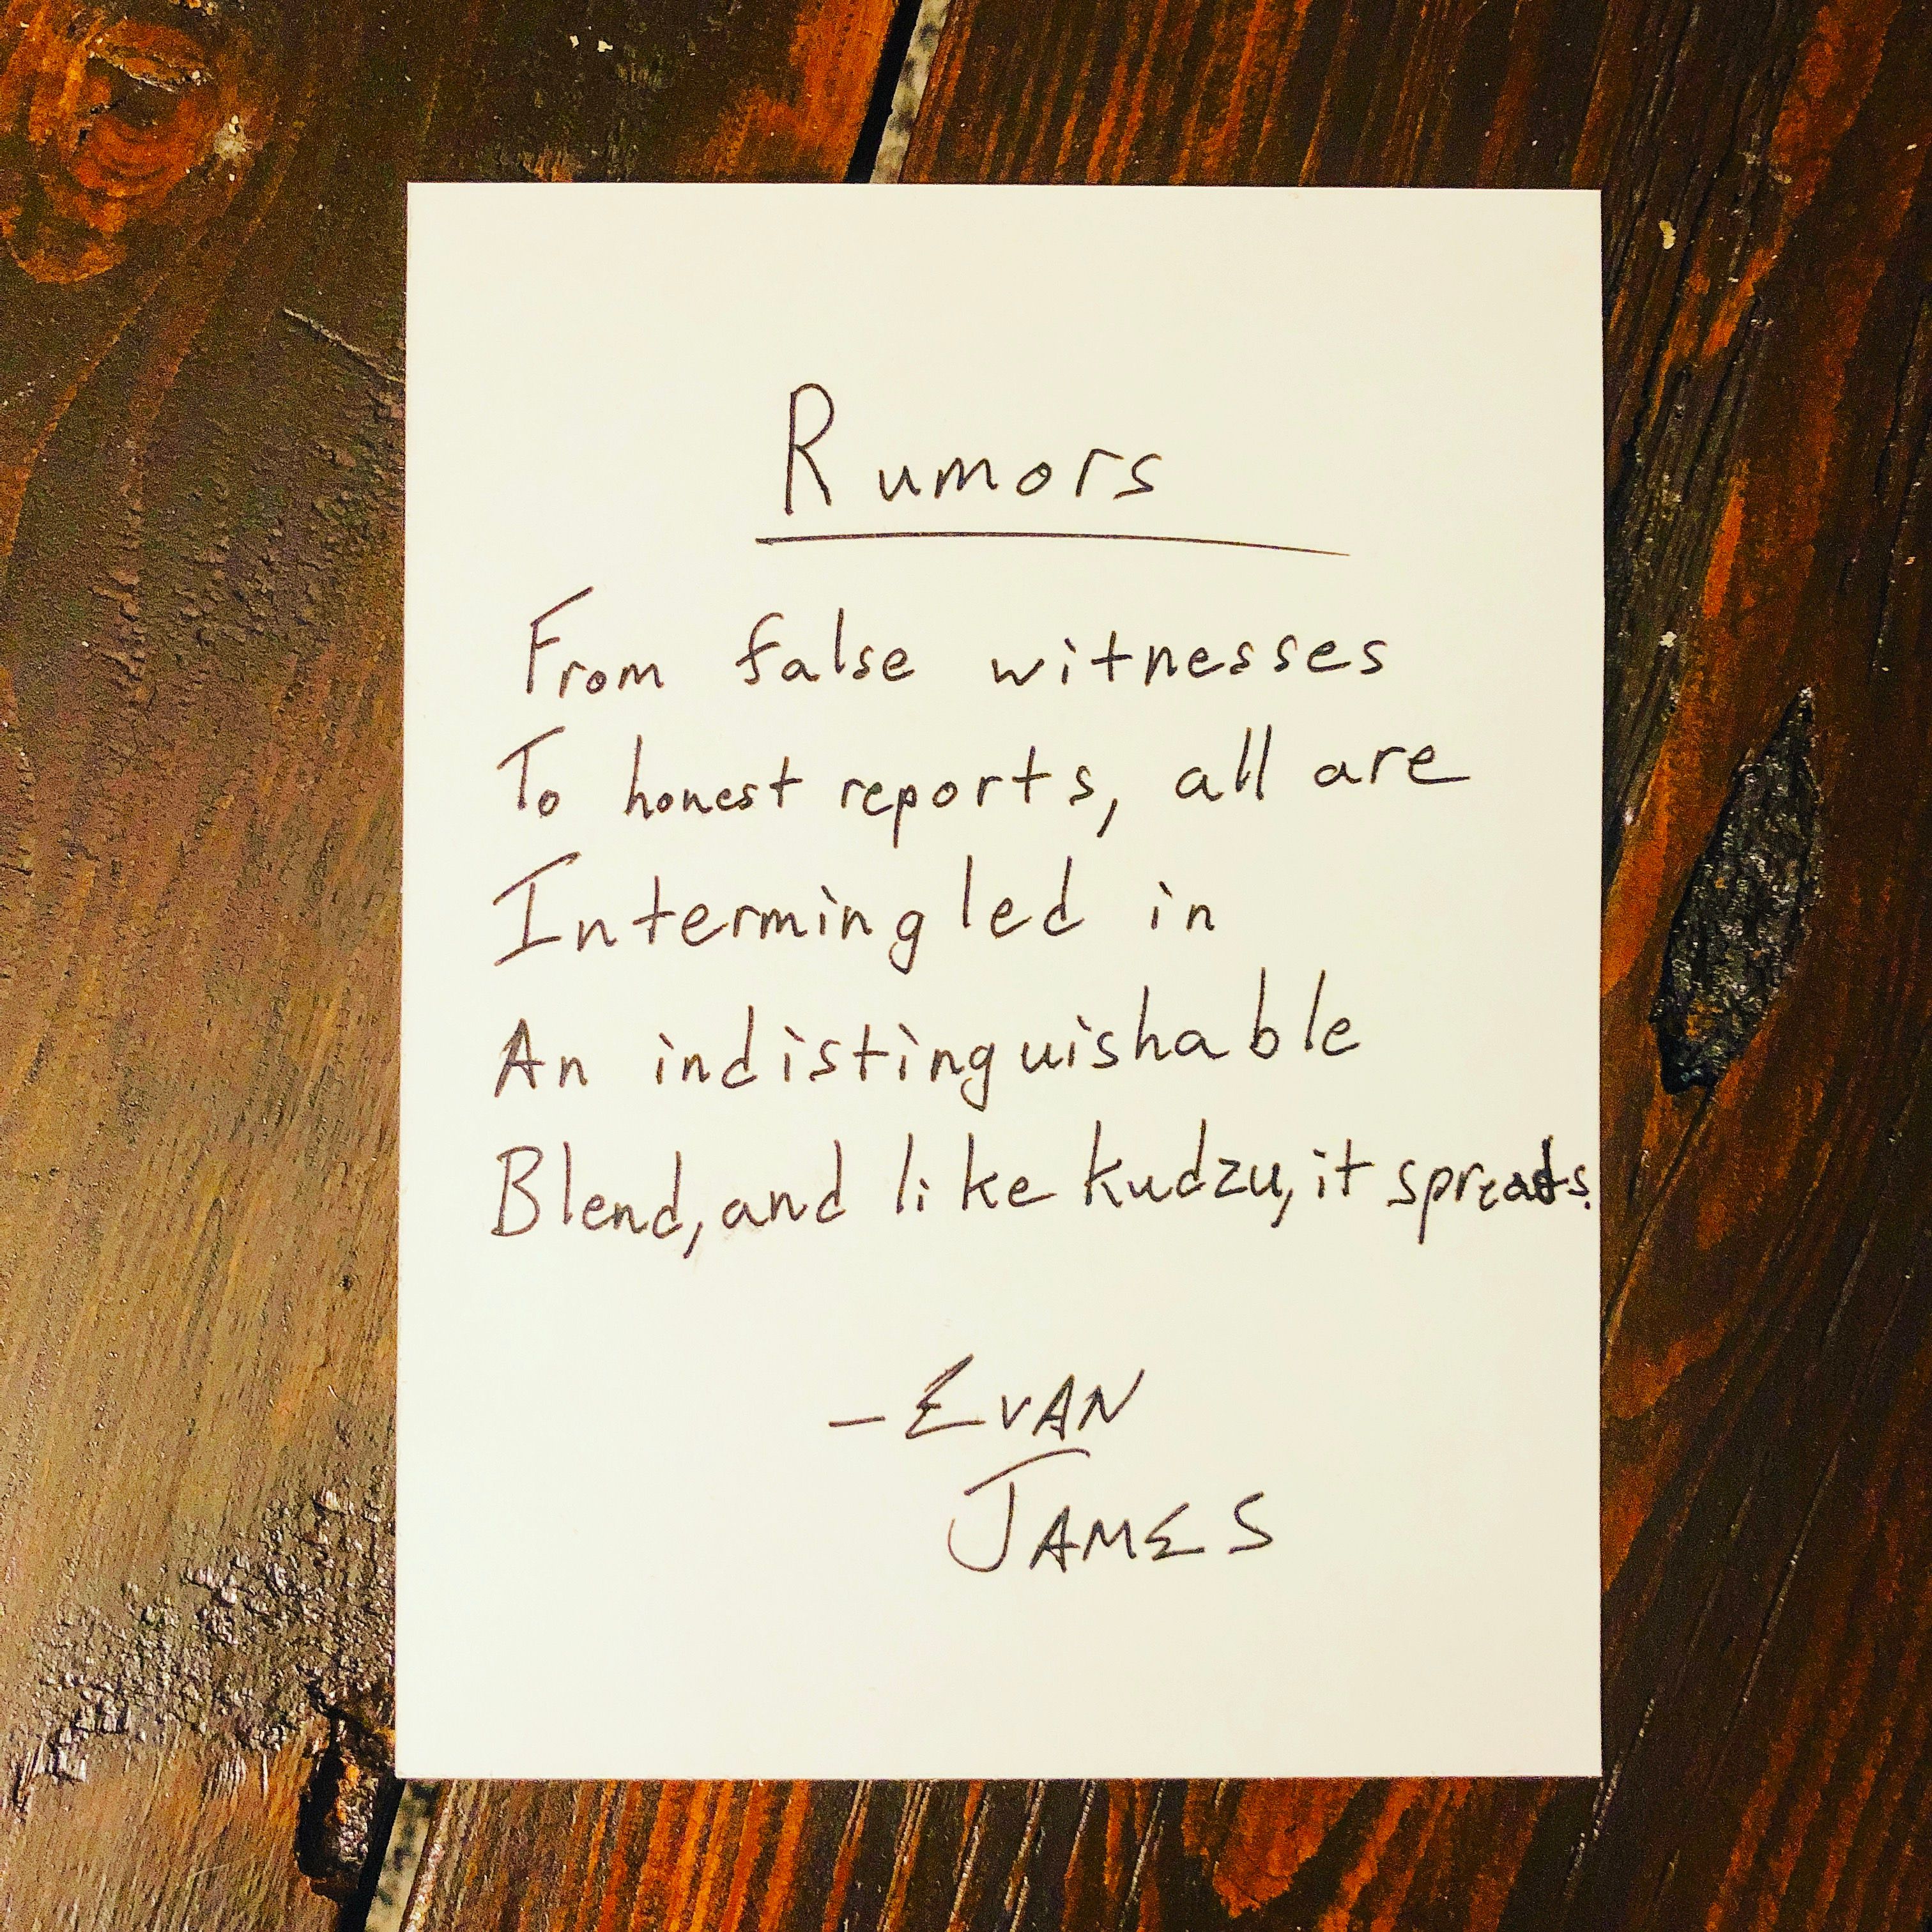 Rumors
From false witnesses
To honest reports, all are
Intermingled in
An indistinguishable
Blend, and like kudzu, it spreads.
- EVAN
JAMES